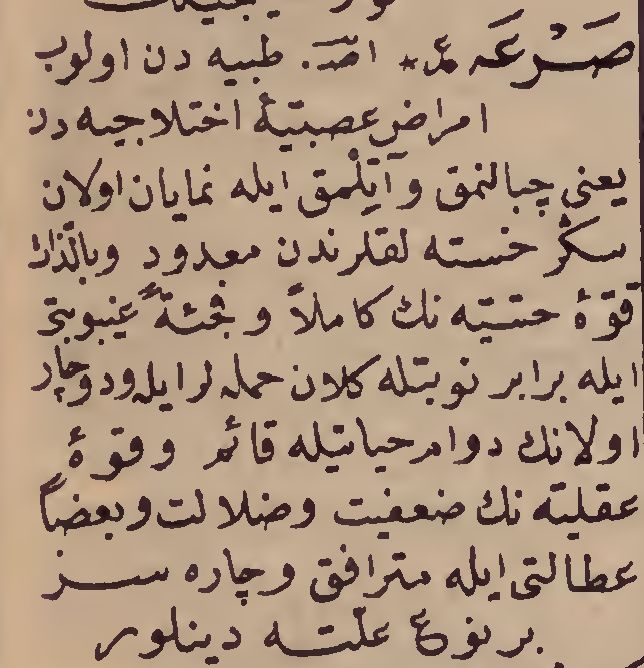 صَرْعَه ع٭ اصـ. طبيه دن اولوب
امراض عصبيّهٔ اختلاجيه دن
يعنى چبالنمق و آتِلْمق ايله نمايان اولان
سكْز خسته لقلرندن معدود و بالذات
قوّهٔ حسّيّه نك كاملاً و بغتةً غيبوبتى
ايله برابر نوبتله كلان حمله لر ايله ودوچار
اولانك دوام حياتيله قائم و قوهٔ
عقليّه نك ضعفيت و ضلالت و بعضاً
عطالتى ايله مترافق و چاره سز
بر نوع علّته دينلور